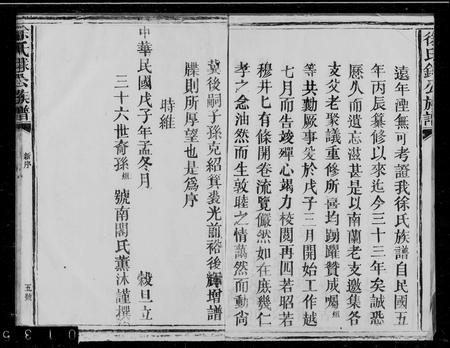 徐氏錄公族譜
遠年湮無可考證我徐氏族譜自民國五
年丙辰纂修以來迄今三十三年矣誠恐
歷久而遺忘滋甚是以南蘭老支邀集各
支父老聚議重修所喜均踴躍贊成囑
等共勷厥事爰於戊子三月開始工作越
七月而告竣殫心竭力校閱再四若昭若
穆井匕有條開卷流覽儼然如在庶幾仁
孝之念油然而生敦睦之情藹然而動尚
冀後嗣子孫克紹箕裘光前裕後輝增譜
牒則所厚望也是為序
時維
中華民國戊子年孟冬月 穀旦立
三十六世奇孫 號南閣氏薰沐謹撰
公族譜
新序
五號